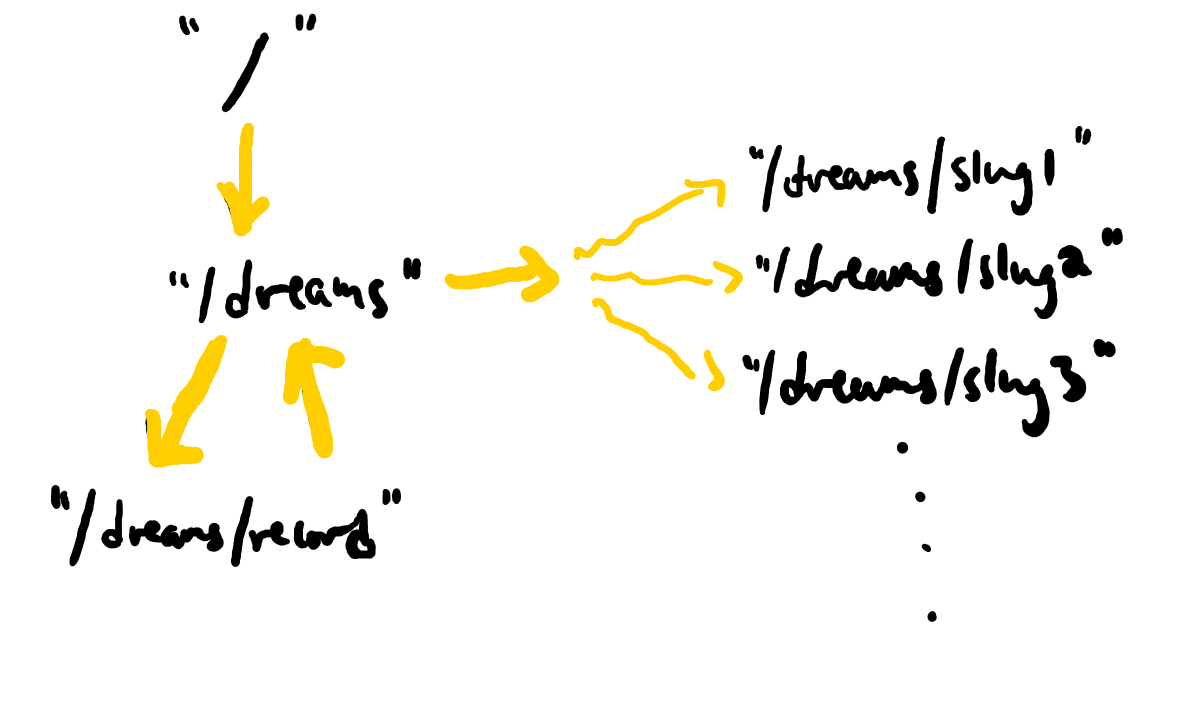 "/"
"/dreams"
"/dreams/record"
"/dreams/slug1"
"/dreams/slug2"
"/dreams/slug3"